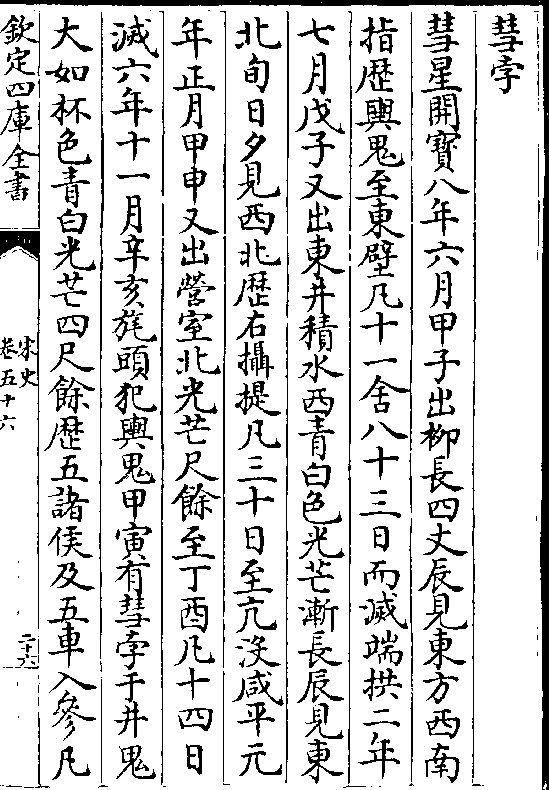 彗孛
彗星開寶八年六月甲子出柳長四丈辰見東方西南
指歴輿鬼至東壁凡十一舍八十三日而滅端拱二年
七月戊子又出東井積水西青白色光芒漸長辰見東
北旬日夕見西北歴右攝提凡三十日至亢没咸平元
年正月甲申又出營室北光芒尺餘至丁酉凡十四日
滅六年十一月辛亥旄頭犯輿鬼甲寅有彗孛于井鬼
大如杯色青白光芒四尺餘歴五諸侯及五車入參凡
欽定四庫全書
宋史
卷五十六
二十六